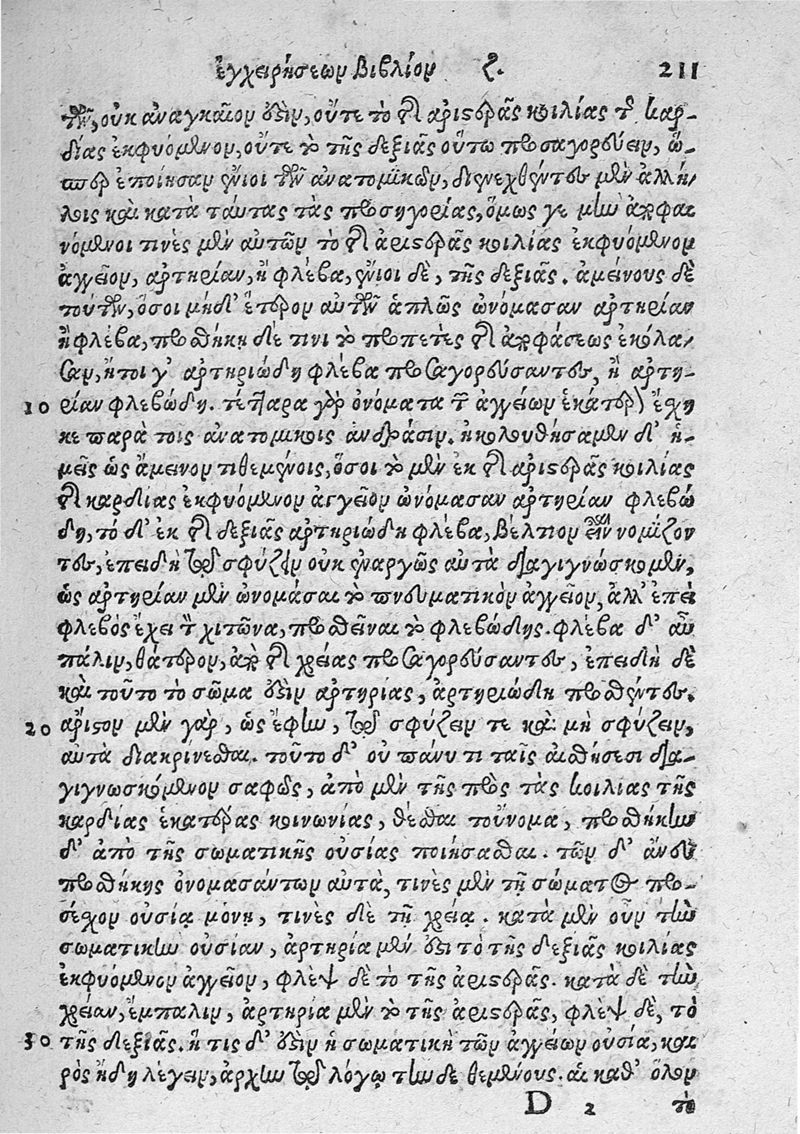 ἐγχειρήσεων βιβλίον ζ. 211
των, οὐκ ἀναγκαῖον ἐστὶν, οὔτε τὸ τῆς ἀριστερᾶς κοιλίας τῆς καρ-
δίας ἐκφυόμενον, οὔτε τὸ τῆς δεξιᾶς οὕτω προσαγορεύειν, ὥ-
σπερ ἐποίησαν ἔνιοι τῶν ἀνατομικῶν, διενεχθέντες μὲν ἀλλή-
λοις καὶ κατὰ ταύτας τὰς προσηγορίας, ὅμως γε μὴν ἀποφαι
νόμενοι τινὲς μὲν αὐτῶν τὸ τῆς ἀριστερᾶς κοιλίας ἐκφυόμενον
ἀγγεῖον, ἀρτηρίαν, ἢ φλέβα, ἔνιοι δὲ, τῆς δεξιᾶς. ἀμείνους δὲ
τούτων, ὅσοι μηδ' ἕτερον αὐτῶν ἁπλῶς ὠνόμασαν ἀρτηρίαν
ἢ φλέβα, προσθήκῃ δέ τινι τὸ προπετὲς τῆς ἀποφάσεως ἐκόλα-
σαν, ἤτοι γ' ἀρτηριώδη φλέβα προσαγορεύσαντες, ἢ ἀρτη-
10 ρίαν φλεβώδη. τέτταρα γὰρ ὀνόματα τῶν ἀγγείων ἑκάτερον ἔσχη
κε παρὰ τοῖς ἀνατομικοῖς ἀνδράσιν. ἠκολουθήσαμεν δ' ἡ-
μεῖς ὡς ἄμεινον τιθεμένοις, ὅσοι τὸ μὲν ἐκ τῆς ἀριστερᾶς κοιλίας
τῆς καρδίας ἐκφυόμενον ἀγγεῖον ὠνόμασαν ἀρτηρίαν φλεβώ
δη, τό δ' ἐκ τῆς δεξιᾶς ἀρτηριώδη φλέβα, βέλτιον εἶναι νομίζον
τες, ἐπειδὴ τῷ σφύζειν οὐκ ἐναργῶς αὐτὰ διαγιγνώσκομεν,
ὡς ἀρτηρίαν μὲν ὠνομάσαι τὸ πνευματικὸν ἀγγεῖον, ἀλλ' ἐπεὶ
φλεβός ἔχει τὸν χιτῶνα, προσθεῖναι τὸ φλεβώδης. φλέβα δ' αὖ
πάλιν, θάτερον, ἀπὸ τῆς χρείας προσαγορεύσαντες, ἐπειδὴ δὲ
καὶ τοῦτο τὸ σῶμα ἐστὶν ἀρτηρίας, ἀρτηριώδη προσθέντες.
20 ἄριστον μὲν γὰρ, ὡς ἔφην, τῷ σφύζειν τε καὶ μὴ σφύζειν,
αὐτὰ διακρίνεσθαι. τοῦτο δ' οὐ πάνυ τι ταῖς αἰσθήσεσι δια-
γιγνωσκόμενον σαφῶς, ἀπὸ μὲν τῆς πρὸς τὰς κοιλίας τῆς
καρδίας ἑκατέρας κοινωνίας, θέσθαι τοὔνομα, προσθήκην
δ' ἀπὸ τῆς σωματικῆς οὐσίας ποιήσασθαι. τῶν δ' ἄνευ
προσθήκης ὀνομασάντων αὐτὰ, τινὲς μὲν τῇ σώματος προ-
σέχον οὐσίᾳ μόνῃ, τινὲς δὲ τῇ χρείᾳ. κατὰ μὲν οὖν τὴν
σωματικὴν οὐσίαν, ἀρτηρία μέν ἐστι τὸ τῆς δεξιᾶς κοιλίας
ἐκφυόμενον ἀγγεῖον, φλὲψ δὲ τὸ τῆς ἀριστερᾶς. κατὰ δὲ τὴν
χρείαν, ἔμπαλιν, ἀρτηρία μὲν τὸ τῆς ἀριστερᾶς, φλὲψ δὲ, τὸ
30 τῆς δεξιᾶς. ἥ τις δ' ἐστὶν ἡ σωματικὴ τῶν ἀγγείων οὐσία, και
ρὸς ἤδη λέγειν, ἀρχὴν τῷ λόγῳ τήνδε θεμένους. αἱ καθ' ὅλον
D 2 τὸ